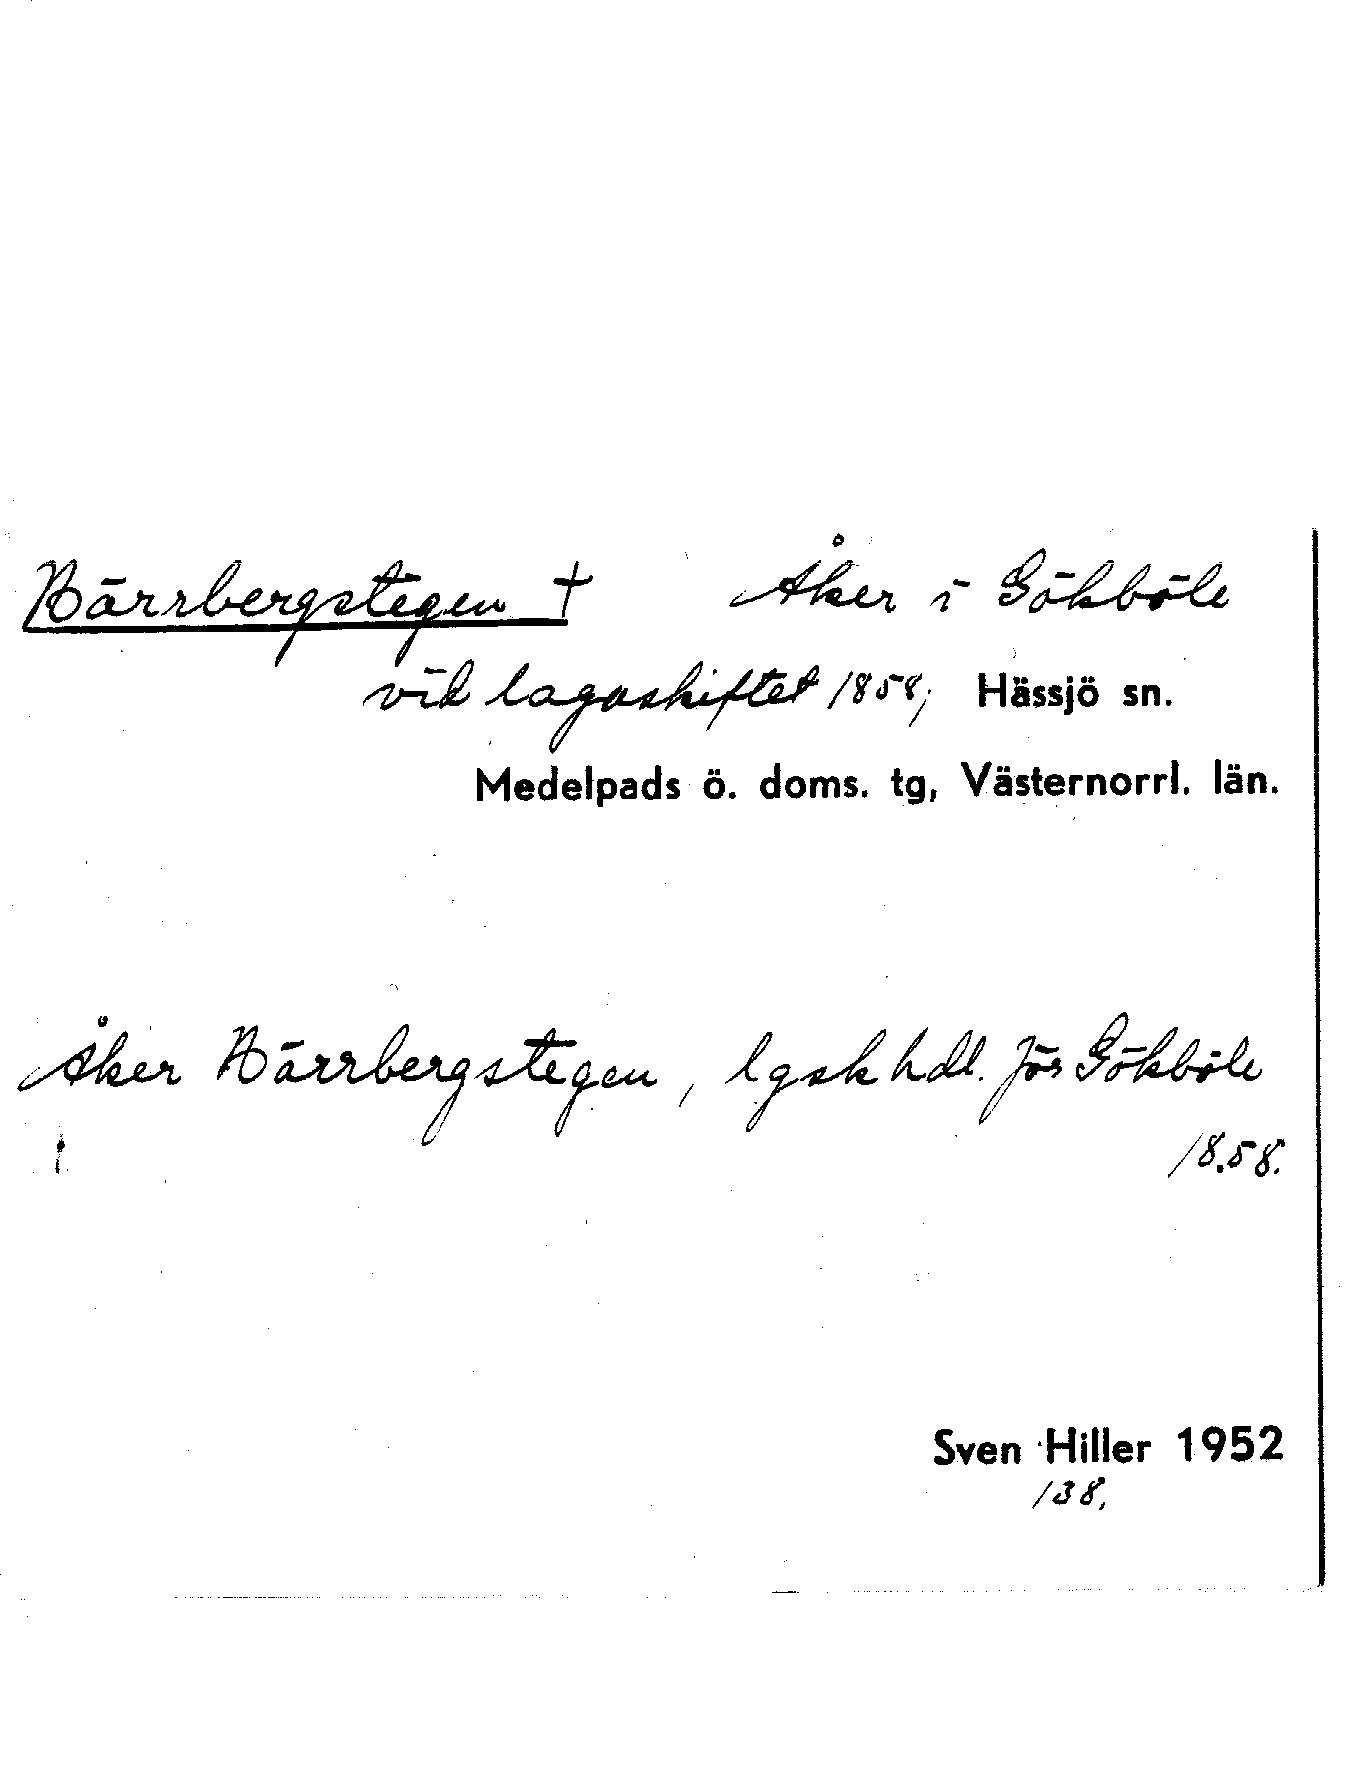 Bärrbergstegen † Åker i Gökböle
vid lagaskiftet 1858, Hässjö sn.
Medelpads ö. doms. tg, Västernorrl. län.
Åker Bärrbergstegen, lgsk hdl. för Gökböle
1858.
Sven Hiller 1952
138,